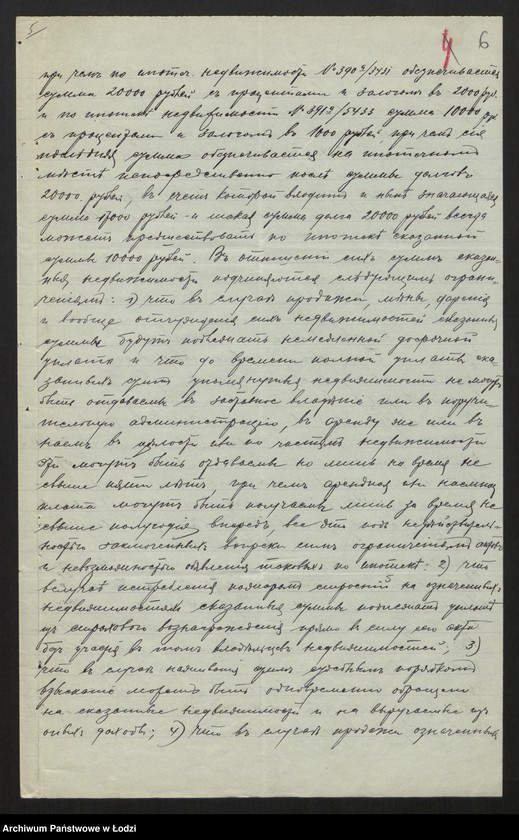 5/
4 6
при чемъ по ипотек. недвижимости № 3903/5431 обезпечивается
сумма 20000 рублей съ процентами и залогомъ въ 2000 руб.
и по ипотекѣ недвижимости № 3912/5433 сумма 10000 ру
съ процентами и залогомъ въ 1000 рублей, при чемъ сія
послѣдняя сумма обезпечивается на ипотечномъ
мѣстѣ непосредственно послѣ суммы долговъ
20000 рублей, въ счетъ которой входитъ и нынѣ значащаяся
сумма 17000 рублей и такая сумма долга 20000 рублей всегда
можетъ предшествовать по ипотекѣ сказанной
суммѣ 10000 рублей. Въ отношеніи сихъ суммъ сказан-
ныя недвижимости подчиняются слѣдующимъ ограни-
ченіямъ: 1) что въ случаѣ продажи, мѣны, даренія
и вообще отчужденія сихъ недвижимостей сказанныя
суммы будутъ подлежать немедленной досрочной
уплатѣ и что до времени полной уплаты ска-
занныхъ суммъ упомянутыя недвижимости не могутъ
быть отдаваемы въ заставное владѣніе или въ поручи-
тельскую администрацію, въ аренду же или въ
наемъ въ цѣлости или по частямъ недвижимости
эти могутъ быть отдаваемы но лишь на время не
свыше пяти лѣтъ, при чемъ арендная или наемная
плата могутъ быть получаемы лишь за время не
свыше полугодія впередъ, все это подъ недѣйствитель-
ностью заключенныхъ вопреки симъ ограниченіямъ актовъ
и невозможности объявленія таковыхъ по ипотекѣ: 2) что
въ случаѣ истребленія пожаромъ строеній на означенныхъ
недвижимостяхъ сказанныя суммы подлежатъ уплатѣ
изъ страхового вознагражденія прямо въ силу сего акта
безъ участія въ томъ владѣльцевъ недвижимостей; 3)
что въ случаѣ взысканія суммъ судебнымъ порядкомъ
взысканіе можетъ быть одновременно обращено
на сказанныя недвижимости и на выручаемые изъ
оныхъ доходы; 4) что въ случаѣ продажи означенныхъ
Archiwum Państwowe w Łodzi